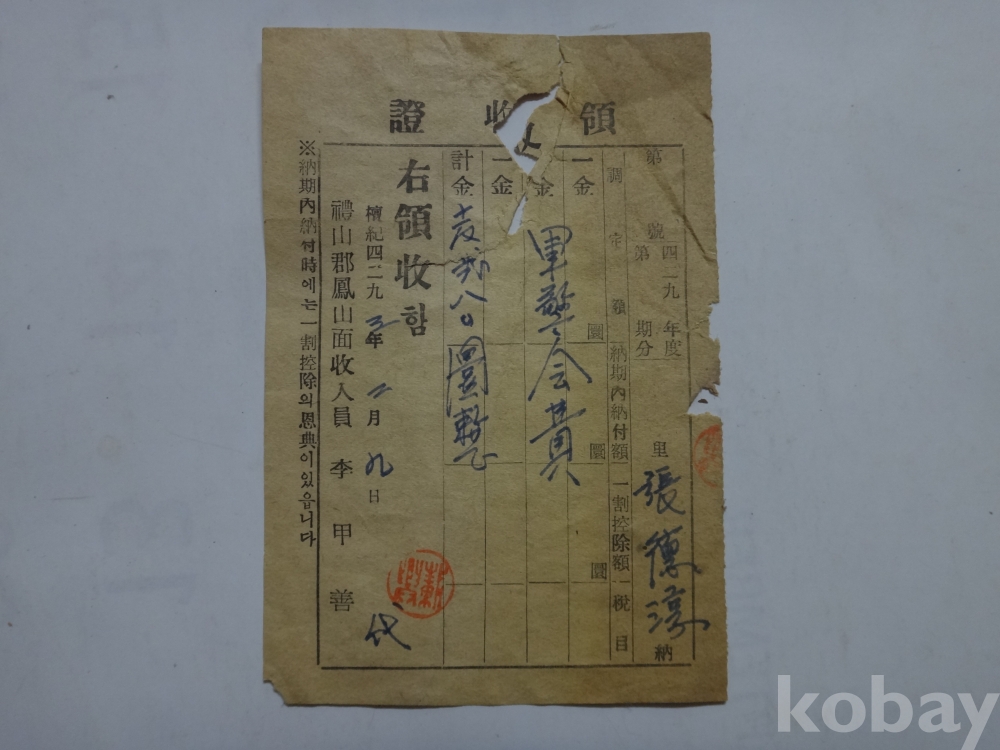 領收證
第 號 四二九 年度 第 期分
里 張德淳 納
調定額 納期內納付額 一割控除額 稅目
一金 圜 圜 圜
金 軍警会費
一金
計金 八〇圜整
右領收함
檀紀四二九三年 二月 九日
禮山郡鳳山面收入員 李甲善 代
※納期內納付時에는一割控除의恩典이있읍니다
kobay